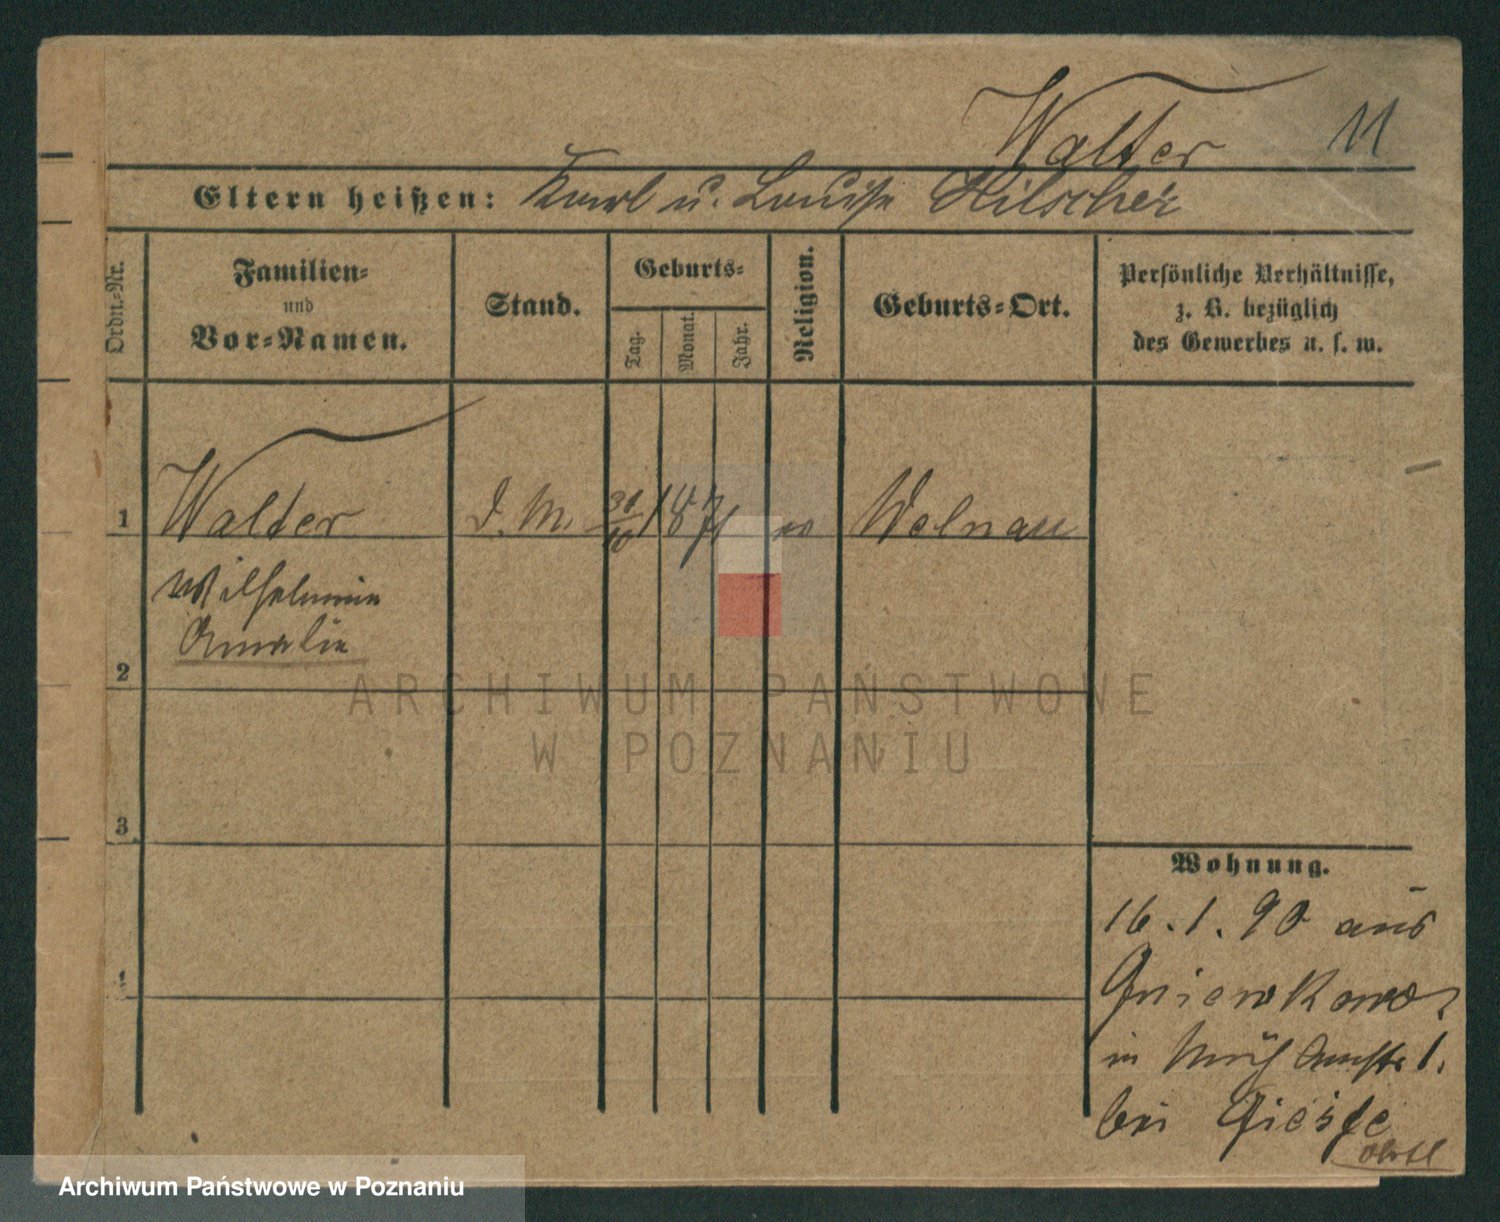 Walter 11
Eltern heißen: Karl u. Louise Hilscher
Ordn.-Nr.
Familien-
und
Vor-Namen.
Stand.
Geburts-
Tag.
Monat.
Jahr.
Religion.
Geburts-Ort.
Persönliche Verhältnisse,
z. B. bezüglich
des Gewerbes u. s. w.
1 Walter D. M. 31/10 1871 Welnau
Wilhelmine
Amalie
2
3
4
Wohnung.
16.1.90 aus
Gniewkowo
in 1.
bei Giese
ARCHIWUM PAŃSTWOWE
W POZNANIU
Archiwum Państwowe w Poznaniu